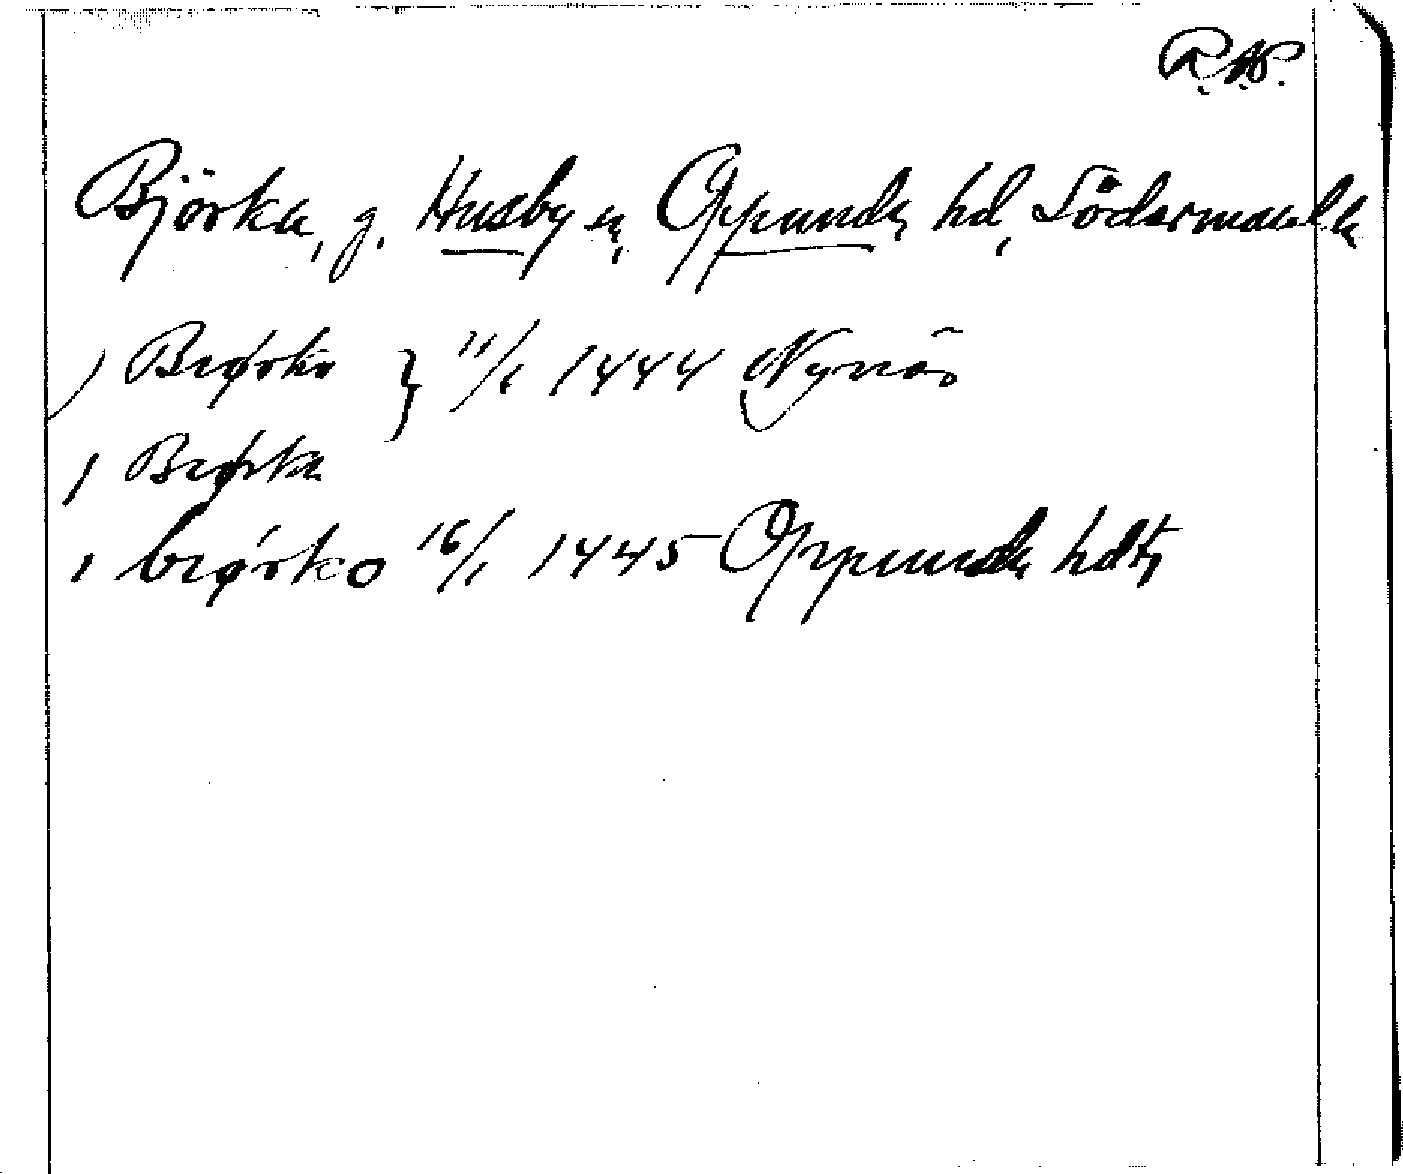 R.A.P.
Björka, g. Husby sn, Oppunda hd, Södermanl
) Biørko } 11/1 1444 Nynäs
) Biørka
) biørko 16/1 1445 Oppunda hdt